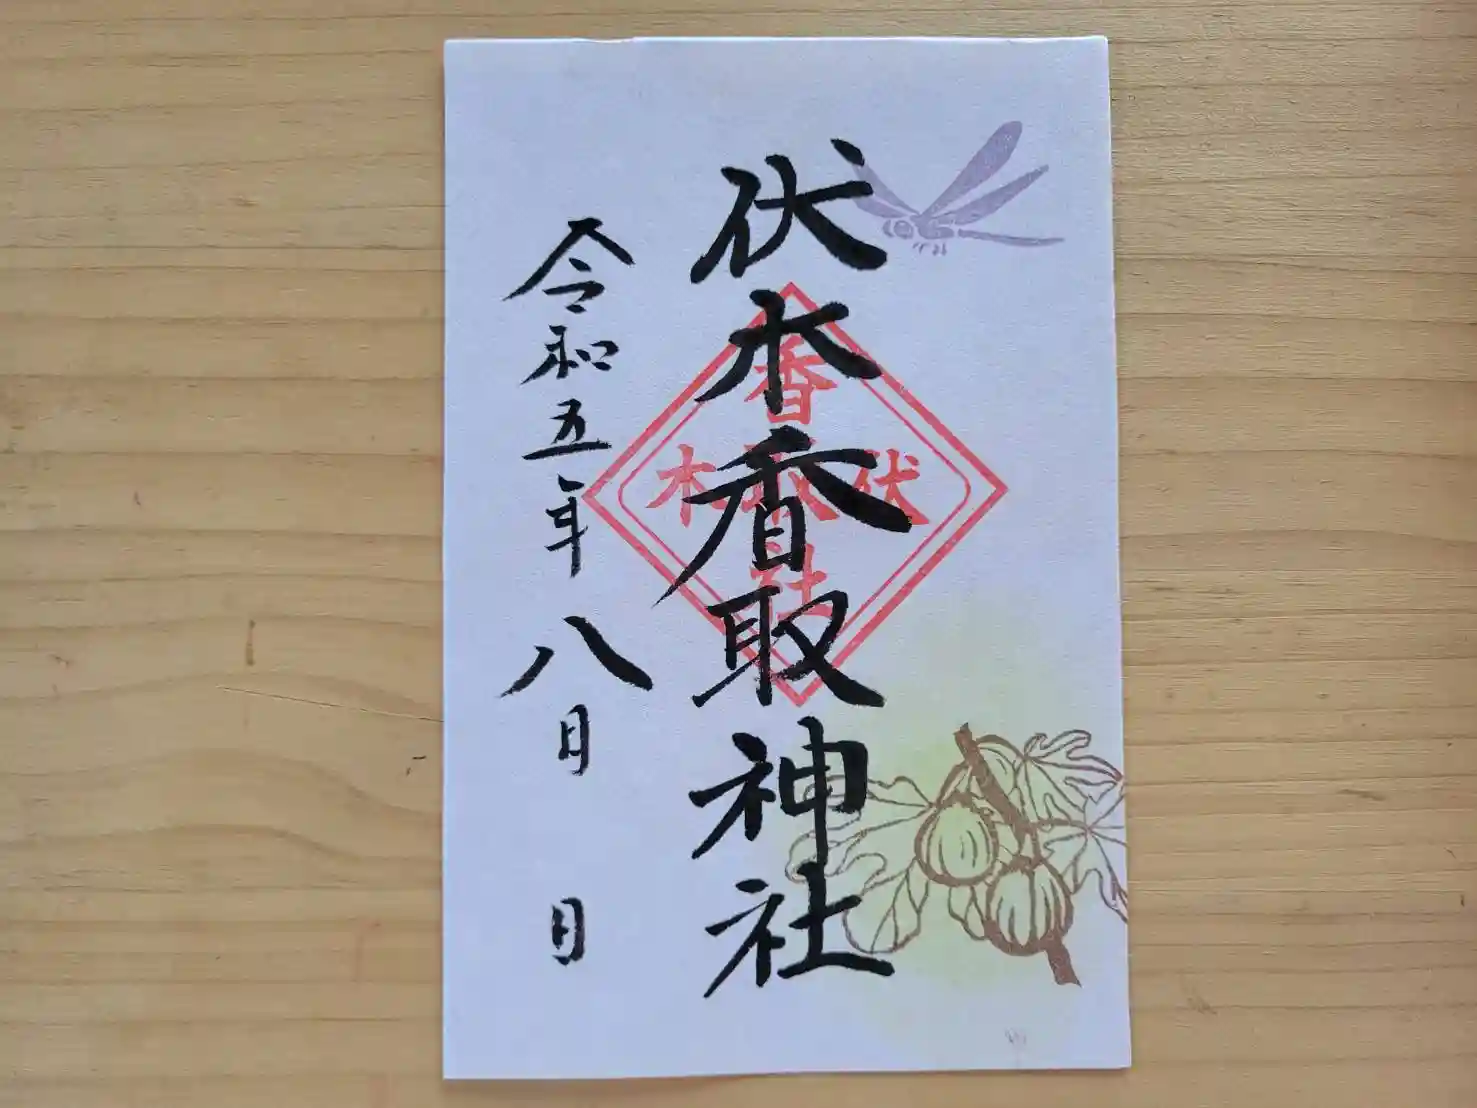 伏木香取神社
香取社
伏木
令和五年八月 日